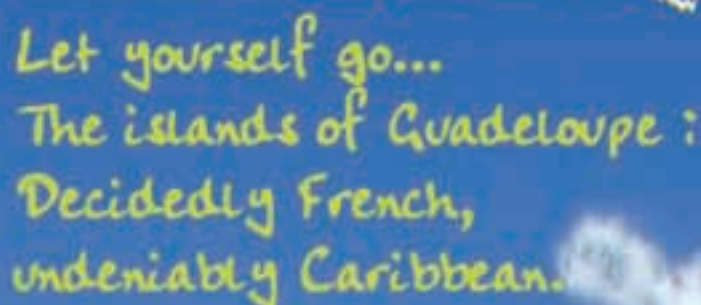 Let yourself go...
The islands of Guadeloupe :
Decidedly French,
undeniably Caribbean.